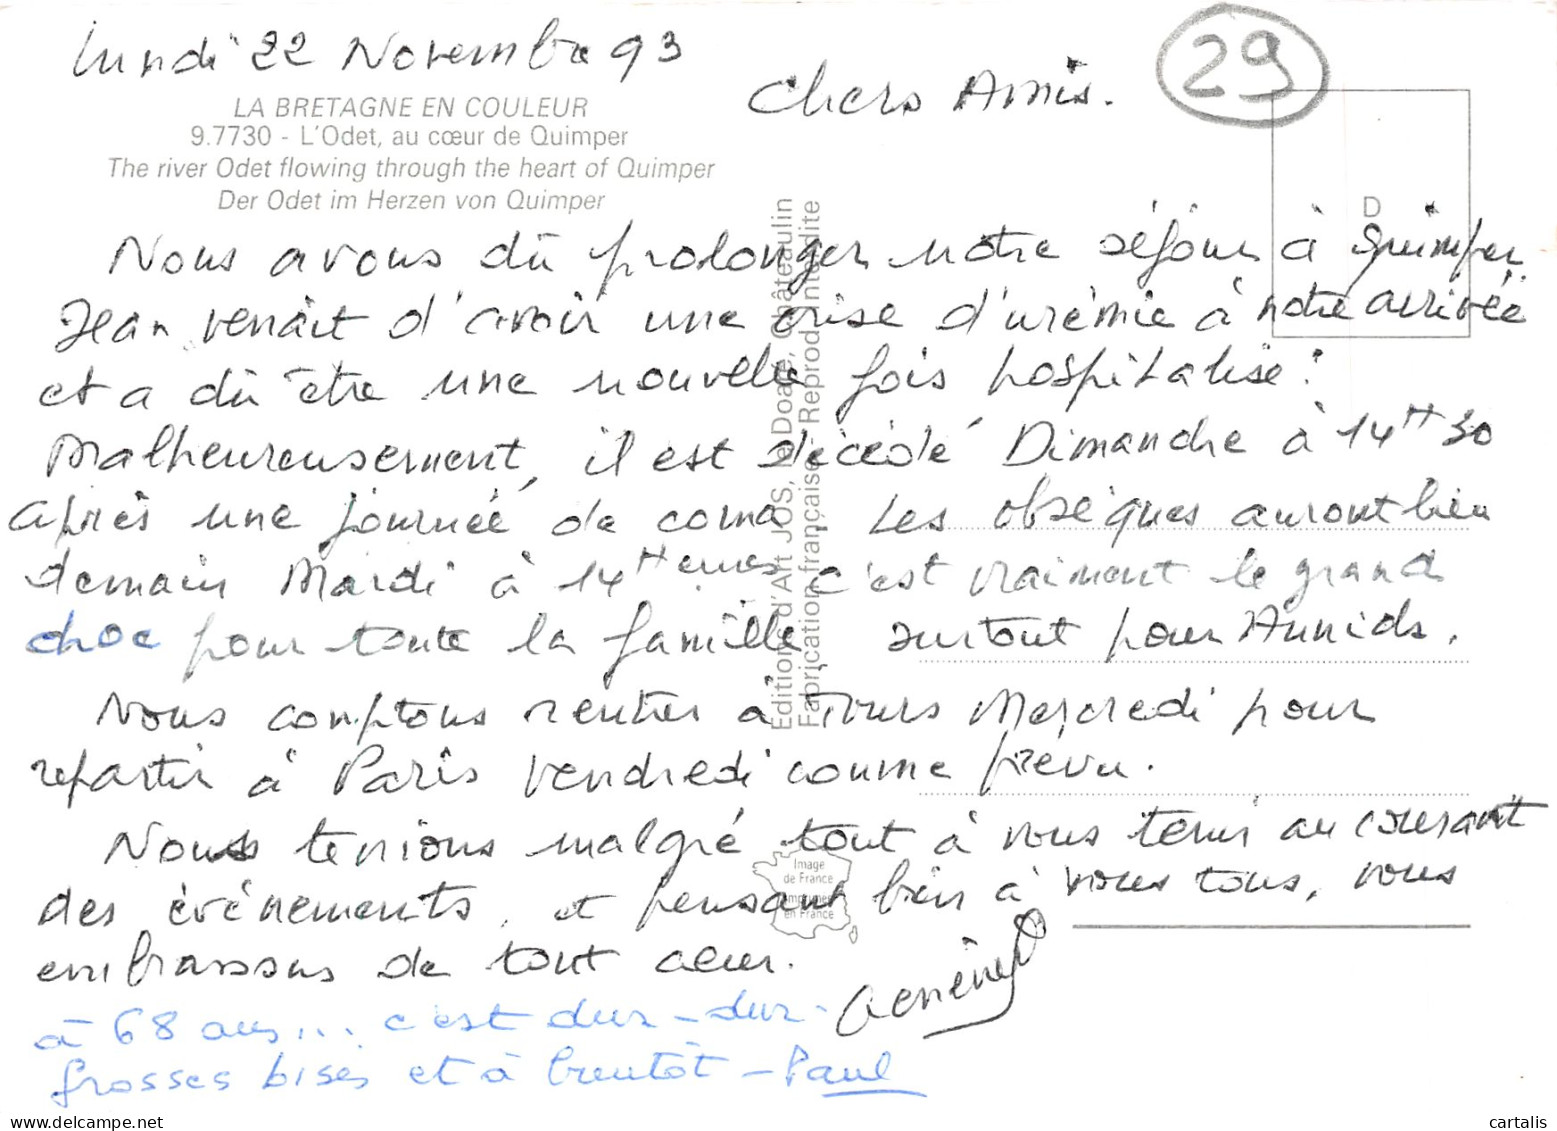 Lundi 22 Novembre 93
29
LA BRETAGNE EN COULEUR
9.7730 - L'Odet, au cœur de Quimper
The river Odet flowing through the heart of Quimper
Der Odet im Herzen von Quimper
Chers Amis.
D
Nous avons dû prolonger notre séjour à Quimper.
Jean venait d'avoir une crise d'urémie à notre arrivée
et a dû être une nouvelle fois hospitalisé.
Malheureusement, il est décédé Dimanche à 14H30
après une journée de coma. Les obsèques auront lieu
demain Mardi à 14H c'est vraiment le grand
choc pour toute la famille, surtout pour
Nous comptons rentrer à Tours Mercredi pour
repartir à Paris vendredi comme prévu.
Nous tenions malgré tout à vous tenir au courant
des événements, et pensant bien à vous tous, vous
embrassons de tout cœur.
à 68 ans... c'est dur - dur -
Grosses bises et à bientôt - Paul
Editions d'Art JOS, le Doaré, Châteaulin
Fabrication française - Reprod. Interdite
Image
de France
Imprimée
en France
cartalis